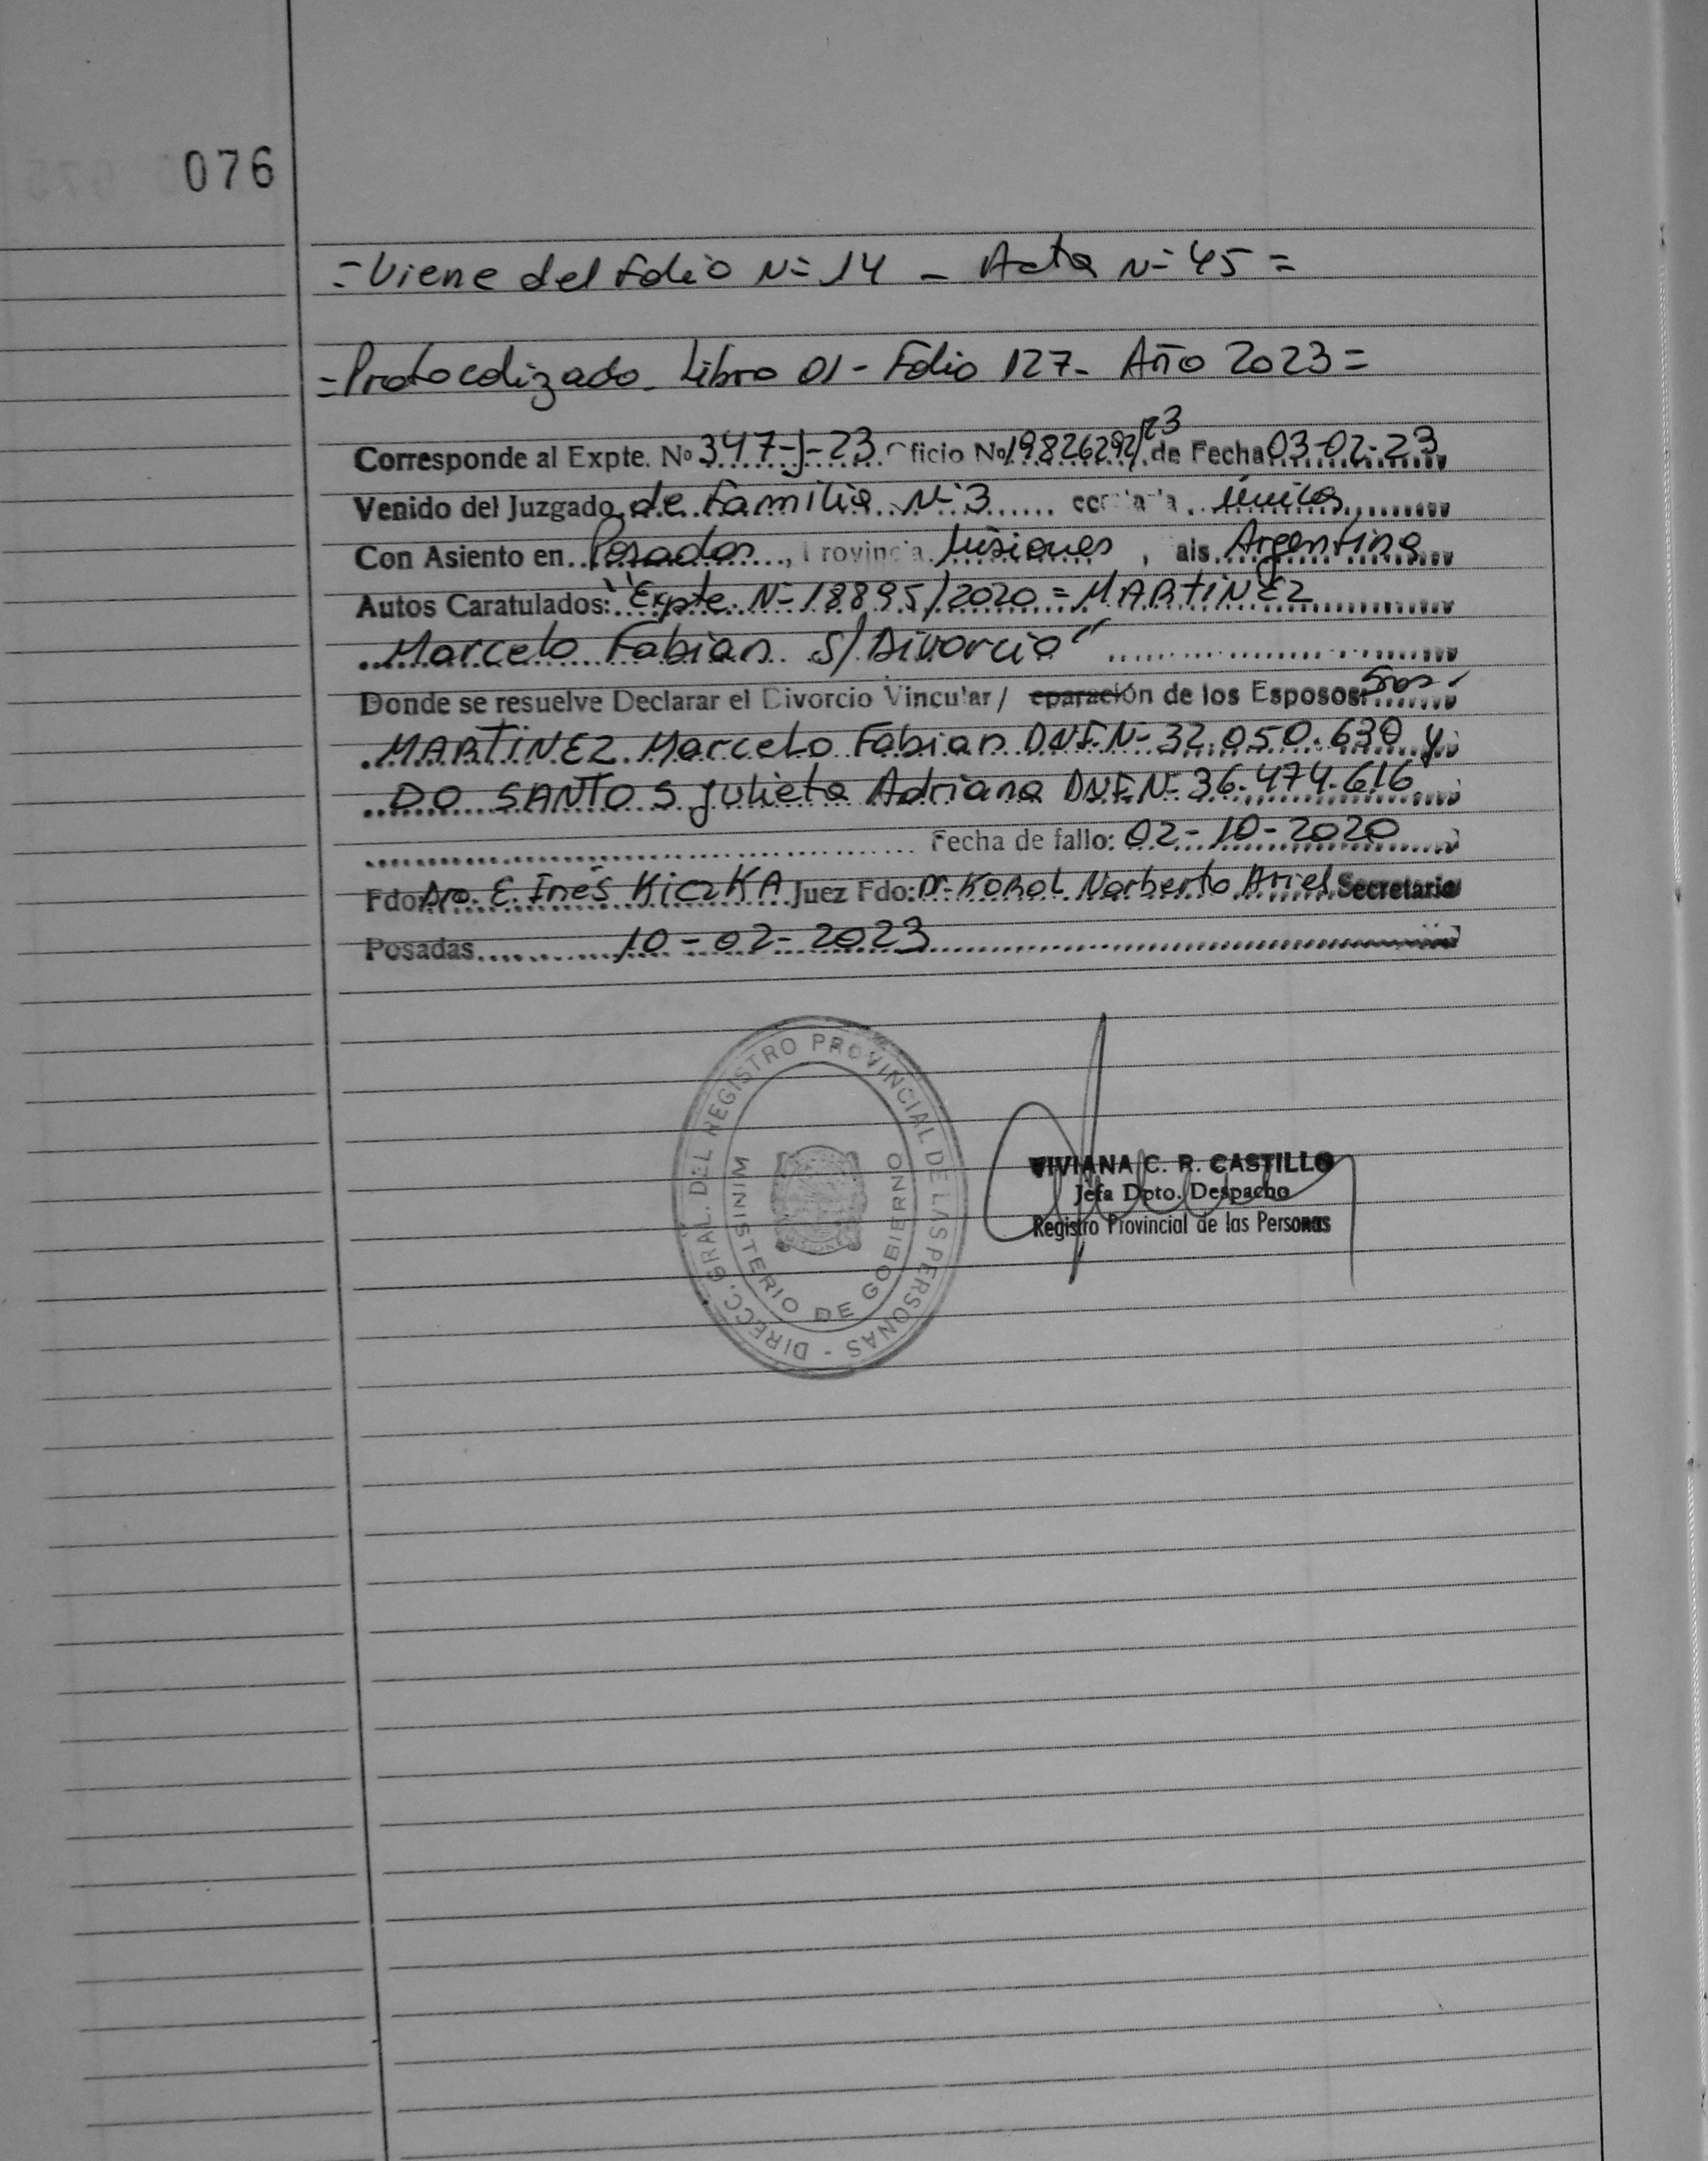 076
=Viene del Folio Nº 14 - Acta Nº 45=
=Protocolizado. Libro 01 - Folio 127- Año 2023=
Corresponde al Expte. Nº 347-J-23 Oficio Nº 19826292/23 de Fecha 03-02-23
Venido del Juzgado de Familia Nº 3 ecretaría única
Con Asiento en Posadas, Provincia Misiones, ais Argentina
Autos Caratulados: "Expte. Nº 18895/2020=MARTINEZ
Marcelo Fabian S/Divorcio"
Donde se resuelve Declarar el Divorcio Vincular / eparación de los Esposos: Sres.
MARTINEZ Marcelo Fabian DNI.Nº 32.050.630 y
DO SANTOS Julieta Adriana DNI.Nº 36.474.616
Fecha de fallo: 02-10-2020
Fdo: Dra. E. Inés KiczKA Juez Fdo: Dr. KOROL Norberto Ariel Secretario
Posadas 10-02-2023
DIRECC. GRAL. DEL REGISTRO PROVINCIAL DE LAS PERSONAS -
MINISTERIO DE GOBIERNO
MISIONES
VIVIANA C. R. CASTILLO
Jefa Dpto. Despacho
Registro Provincial de las Personas